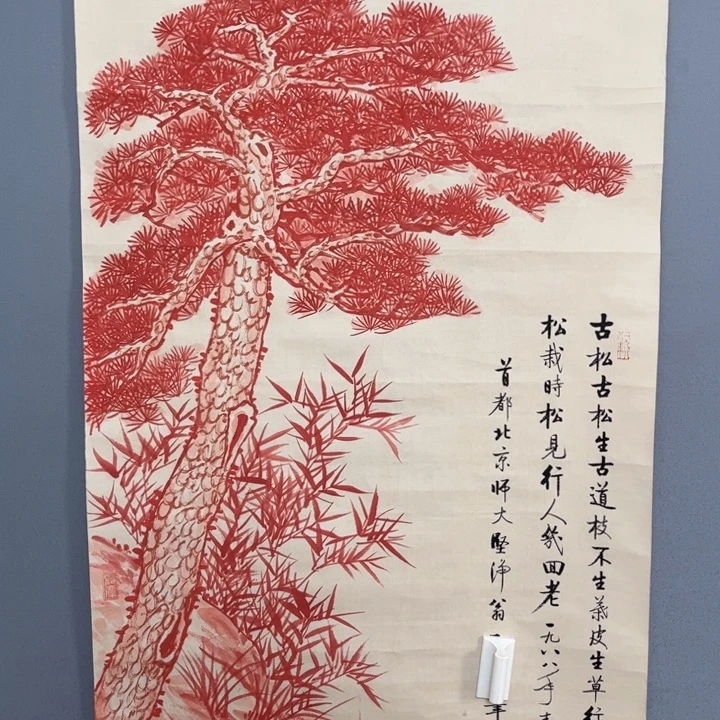 古松古松生古道枝不生葉皮生草行
松栽時松見行人幾回老一九八八年
首都北京師大堅淨翁